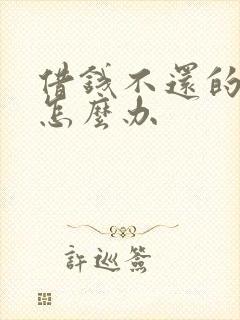 借錢不還的
怎麼办
許巡簽